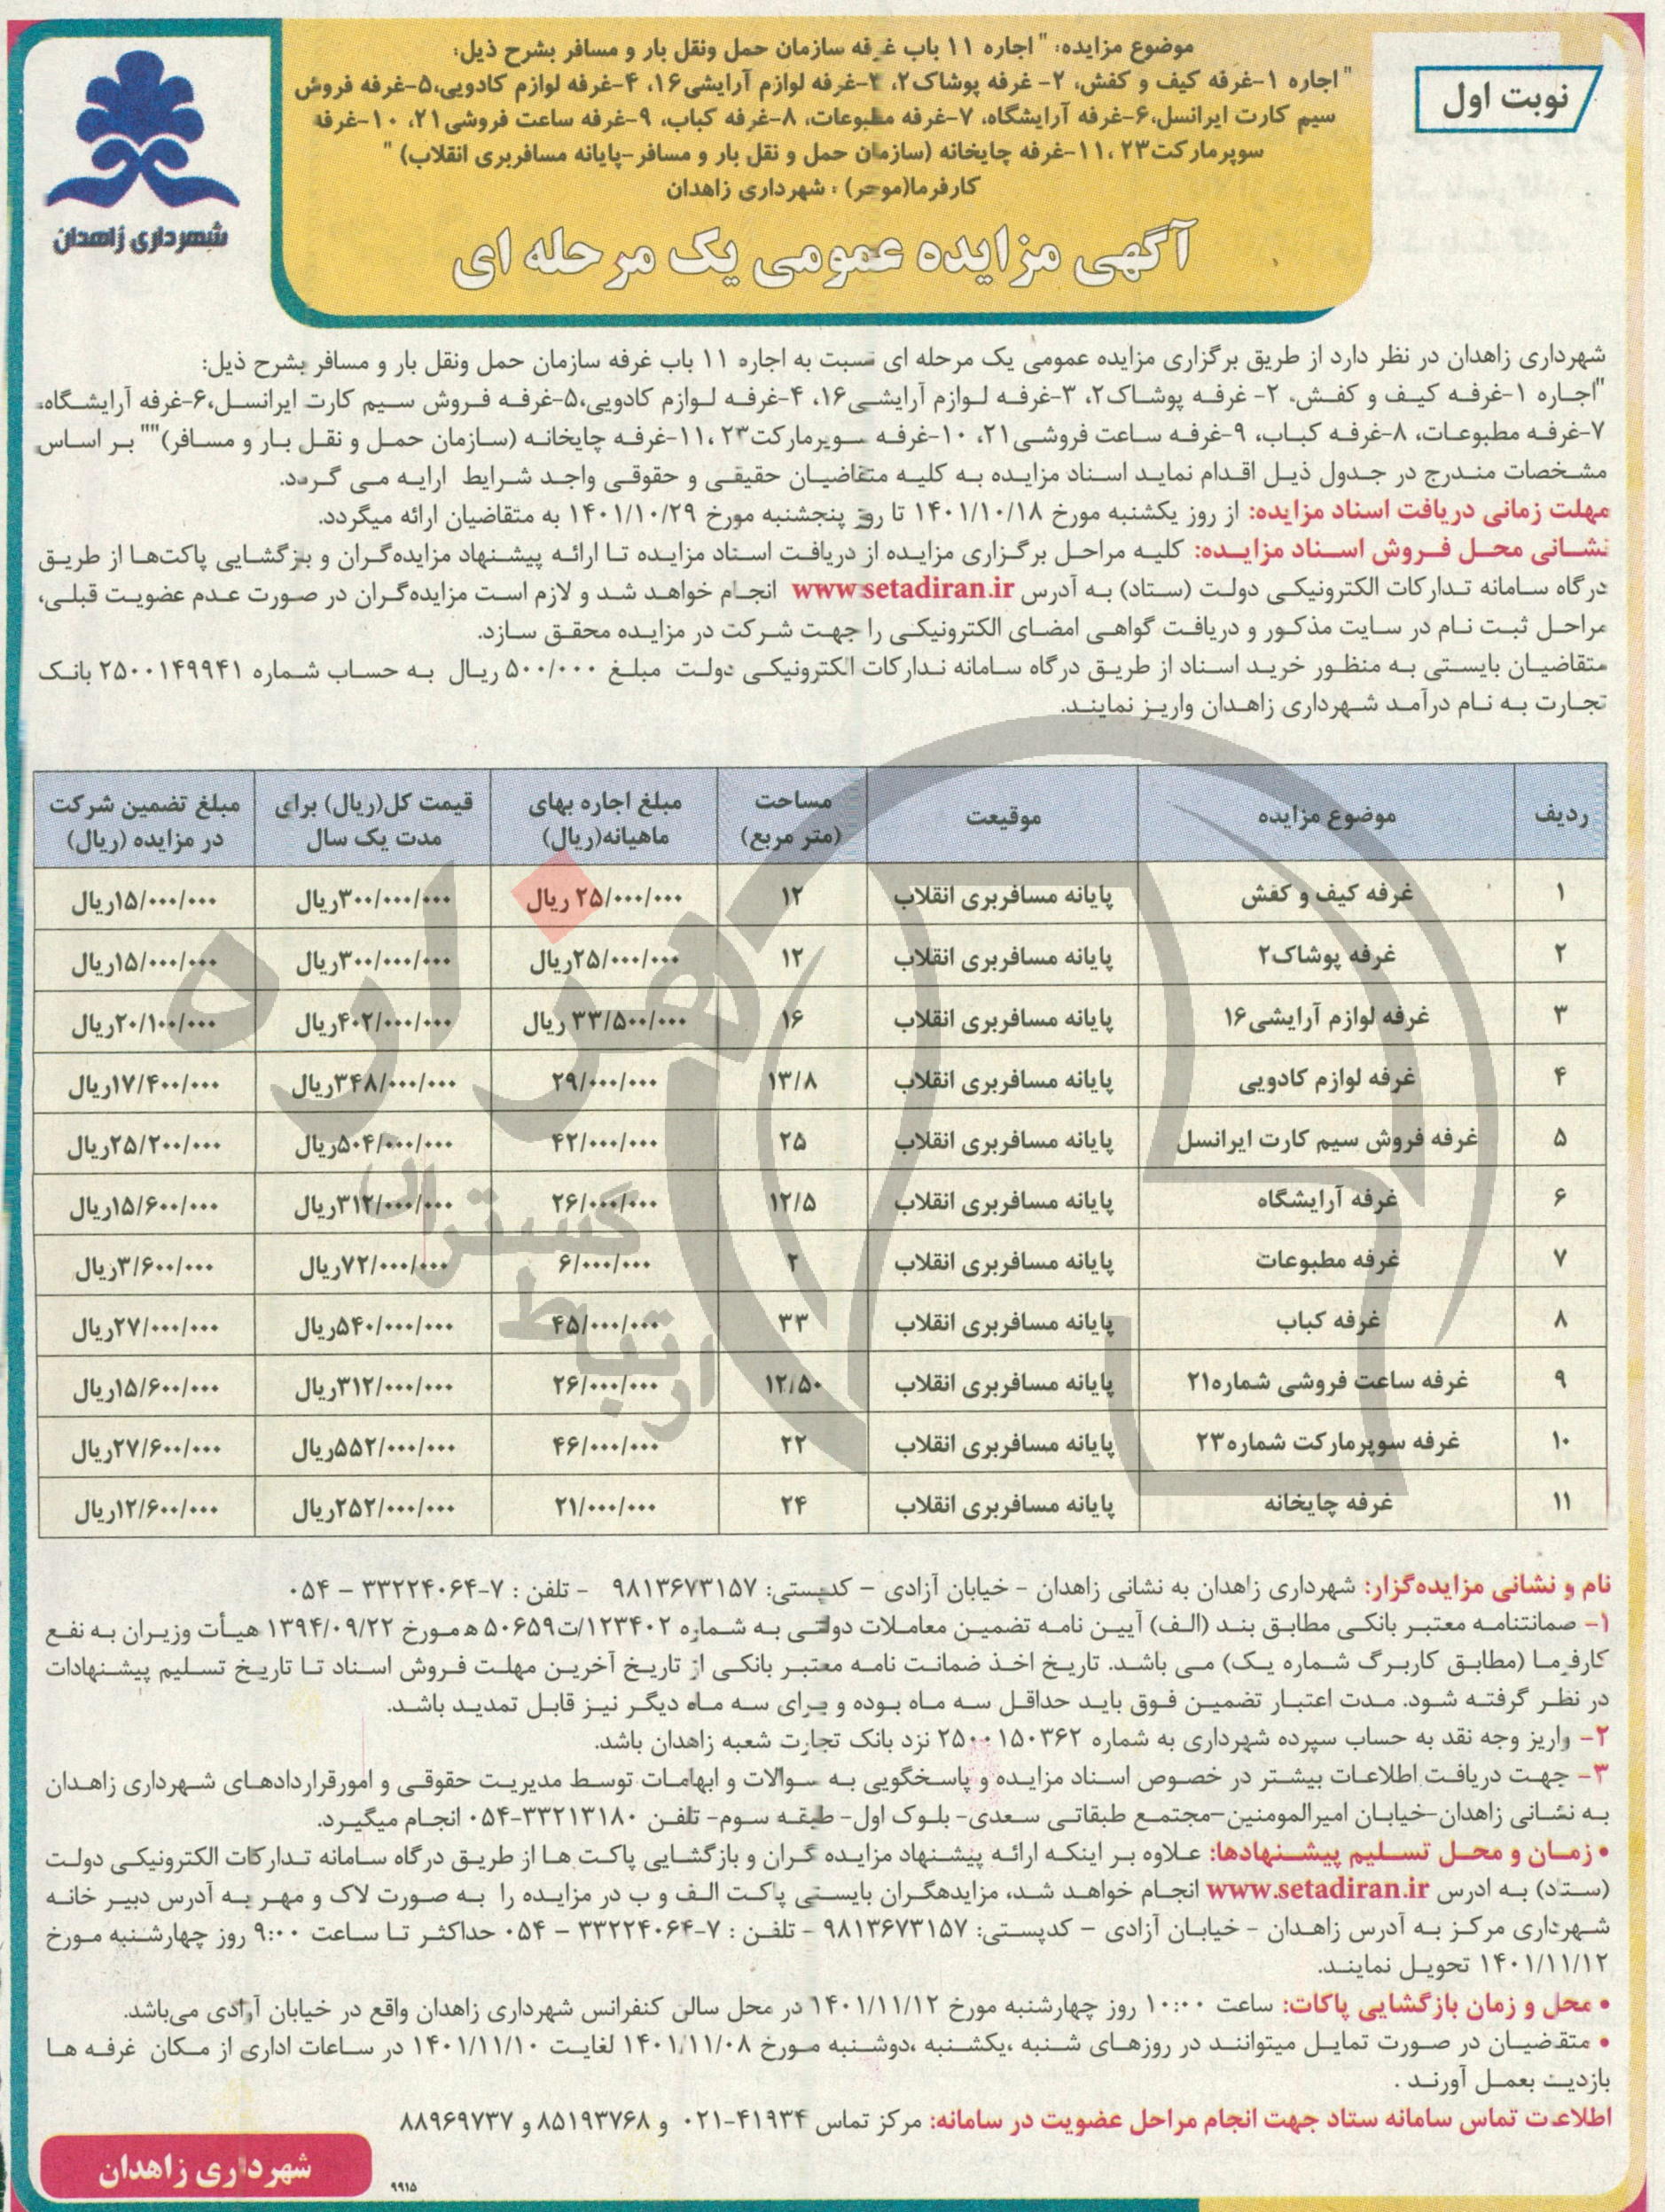 موضوع مزایده: " اجاره ۱۱ باب غرفه سازمان حمل ونقل بار و مسافر بشرح ذیل:
" اجاره ۱-غرفه کیف و کفش، ۲- غرفه پوشاک۲، ۳-غرفه لوازم آرایشی۱۶، ۴-غرفه لوازم کادویی،۵-غرفه فروش
سیم کارت ایرانسل،۶-غرفه آرایشگاه، ۷-غرفه مطبوعات، ۸-غرفه کباب، ۹-غرفه ساعت فروشی۲۱، ۱۰-غرفه
سوپرمارکت۲۳ ،۱۱-غرفه چایخانه (سازمان حمل و نقل بار و مسافر-پایانه مسافربری انقلاب) "
کارفرما(موجر) : شهرداری زاهدان
نوبت اول
شهرداری زاهدان
آگهی مزایده عمومی یک مرحله ای
شهرداری زاهدان در نظر دارد از طریق برگزاری مزایده عمومی یک مرحله ای نسبت به اجاره ۱۱ باب غرفه سازمان حمل ونقل بار و مسافر بشرح ذیل:
"اجاره ۱-غرفه کیف و کفش، ۲- غرفه پوشاک۲، ۳-غرفه لوازم آرایشی۱۶، ۴-غرفه لوازم کادویی،۵-غرفه فروش سیم کارت ایرانسل،۶-غرفه آرایشگاه،
۷-غرفه مطبوعات، ۸-غرفه کباب، ۹-غرفه ساعت فروشی۲۱، ۱۰-غرفه سوپرمارکت۲۳ ،۱۱-غرفه چایخانه (سازمان حمل و نقل بار و مسافر)"" بر اساس
مشخصات مندرج در جدول ذیل اقدام نماید اسناد مزایده به کلیه متقاضیان حقیقی و حقوقی واجد شرایط ارایه می گردد.
مهلت زمانی دریافت اسناد مزایده: از روز یکشنبه مورخ ۱۴۰۱/۱۰/۱۸ تا روز پنجشنبه مورخ ۱۴۰۱/۱۰/۲۹ به متقاضیان ارائه میگردد.
نشانی محل فروش اسناد مزایده: کلیه مراحل برگزاری مزایده از دریافت اسناد مزایده تا ارائه پیشنهاد مزایده‌گران و بازگشایی پاکت‌ها از طریق
درگاه سامانه تدارکات الکترونیکی دولت (ستاد) به آدرس www.setadiran.ir انجام خواهد شد و لازم است مزایده‌گران در صورت عدم عضویت قبلی،
مراحل ثبت نام در سایت مذکور و دریافت گواهی امضای الکترونیکی را جهت شرکت در مزایده محقق سازد.
متقاضیان بایستی به منظور خرید اسناد از طریق درگاه سامانه تدارکات الکترونیکی دولت مبلغ ۵۰۰/۰۰۰ ریال به حساب شماره ۲۵۰۰۱۴۹۹۴۱ بانک
تجارت به نام درآمد شهرداری زاهدان واریز نمایند.
ردیف موضوع مزایده موقیعت مساحت (متر مربع) مبلغ اجاره بهای ماهیانه(ریال) قیمت کل(ریال) برای مدت یک سال مبلغ تضمین شرکت در مزایده (ریال)
۱ غرفه کیف و کفش پایانه مسافربری انقلاب ۱۲ ۲۵/۰۰۰/۰۰۰ ریال ۳۰۰/۰۰۰/۰۰۰ریال ۱۵/۰۰۰/۰۰۰ریال
۲ غرفه پوشاک۲ پایانه مسافربری انقلاب ۱۲ ۲۵/۰۰۰/۰۰۰ریال ۳۰۰/۰۰۰/۰۰۰ریال ۱۵/۰۰۰/۰۰۰ریال
۳ غرفه لوازم آرایشی۱۶ پایانه مسافربری انقلاب ۱۶ ۳۳/۵۰۰/۰۰۰ ریال ۴۰۲/۰۰۰/۰۰۰ریال ۲۰/۱۰۰/۰۰۰ریال
۴ غرفه لوازم کادویی پایانه مسافربری انقلاب ۱۳/۸ ۲۹/۰۰۰/۰۰۰ ۳۴۸/۰۰۰/۰۰۰ریال ۱۷/۴۰۰/۰۰۰ریال
۵ غرفه فروش سیم کارت ایرانسل پایانه مسافربری انقلاب ۲۵ ۴۲/۰۰۰/۰۰۰ ۵۰۴/۰۰۰/۰۰۰ریال ۲۵/۲۰۰/۰۰۰ریال
۶ غرفه آرایشگاه پایانه مسافربری انقلاب ۱۲/۵ ۲۶/۰۰۰/۰۰۰ ۳۱۲/۰۰۰/۰۰۰ریال ۱۵/۶۰۰/۰۰۰ریال
۷ غرفه مطبوعات پایانه مسافربری انقلاب ۲ ۶/۰۰۰/۰۰۰ ۷۲/۰۰۰/۰۰۰ریال ۳/۶۰۰/۰۰۰ریال
۸ غرفه کباب پایانه مسافربری انقلاب ۳۳ ۴۵/۰۰۰/۰۰۰ ۵۴۰/۰۰۰/۰۰۰ریال ۲۷/۰۰۰/۰۰۰ریال
۹ غرفه ساعت فروشی شماره۲۱ پایانه مسافربری انقلاب ۱۲/۵۰ ۲۶/۰۰۰/۰۰۰ ۳۱۲/۰۰۰/۰۰۰ریال ۱۵/۶۰۰/۰۰۰ریال
۱۰ غرفه سوپرمارکت شماره۲۳ پایانه مسافربری انقلاب ۲۲ ۴۶/۰۰۰/۰۰۰ ۵۵۲/۰۰۰/۰۰۰ریال ۲۷/۶۰۰/۰۰۰ریال
۱۱ غرفه چایخانه پایانه مسافربری انقلاب ۲۴ ۲۱/۰۰۰/۰۰۰ ۲۵۲/۰۰۰/۰۰۰ریال ۱۲/۶۰۰/۰۰۰ریال
هزاره
گستران
ارتباط
نام و نشانی مزایده‌گزار: شهرداری زاهدان به نشانی زاهدان - خیابان آزادی – کدپستی: ۹۸۱۳۶۷۳۱۵۷ - تلفن : ۷-۳۳۲۲۴۰۶۴ – ۰۵۴
۱- ضمانتنامه معتبر بانکی مطابق بند (الف) آیین نامه تضمین معاملات دولتی به شماره ۱۲۳۴۰۲/ت۵۰۶۵۹ ه مورخ ۱۳۹۴/۰۹/۲۲ هیأت وزیران به نفع
کارفرما (مطابق کاربرگ شماره یک) می باشد. تاریخ اخذ ضمانت نامه معتبر بانکی از تاریخ آخرین مهلت فروش اسناد تا تاریخ تسلیم پیشنهادات
در نظر گرفته شود. مدت اعتبار تضمین فوق باید حداقل سه ماه بوده و برای سه ماه دیگر نیز قابل تمدید باشد.
۲- واریز وجه نقد به حساب سپرده شهرداری به شماره ۲۵۰۰۱۵۰۳۶۲ نزد بانک تجارت شعبه زاهدان باشد.
۳- جهت دریافت اطلاعات بیشتر در خصوص اسناد مزایده و پاسخگویی به سوالات و ابهامات توسط مدیریت حقوقی و امورقراردادهای شهرداری زاهدان
به نشانی زاهدان-خیابان امیرالمومنین-مجتمع طبقاتی سعدی- بلوک اول- طبقه سوم- تلفن ۳۳۲۱۳۱۸۰-۰۵۴ انجام میگیرد.
• زمان و محل تسلیم پیشنهادها: علاوه بر اینکه ارائه پیشنهاد مزایده گران و بازگشایی پاکت ها از طریق درگاه سامانه تدارکات الکترونیکی دولت
(ستاد) به ادرس www.setadiran.ir انجام خواهد شد، مزایدهگران بایستی پاکت الف و ب در مزایده را به صورت لاک و مهر به آدرس دبیر خانه
شهرداری مرکز به آدرس زاهدان - خیابان آزادی – کدپستی: ۹۸۱۳۶۷۳۱۵۷ - تلفن : ۷-۳۳۲۲۴۰۶۴ – ۰۵۴ حداکثر تا ساعت ۹:۰۰ روز چهارشنبه مورخ
۱۴۰۱/۱۱/۱۲ تحویل نمایند.
• محل و زمان بازگشایی پاکات: ساعت ۱۰:۰۰ روز چهارشنبه مورخ ۱۴۰۱/۱۱/۱۲ در محل سالن کنفرانس شهرداری زاهدان واقع در خیابان آزادی می‌باشد.
• متقضیان در صورت تمایل میتوانند در روزهای شنبه ،یکشنبه ،دوشنبه مورخ ۱۴۰۱/۱۱/۰۸ لغایت ۱۴۰۱/۱۱/۱۰ در ساعات اداری از مکان غرفه ها
بازدیت بعمل آورند .
اطلاعت تماس سامانه ستاد جهت انجام مراحل عضویت در سامانه: مرکز تماس ۴۱۹۳۴-۰۲۱ و ۸۵۱۹۳۷۶۸ و ۸۸۹۶۹۷۳۷
شهرداری زاهدان
۹۹۱۵